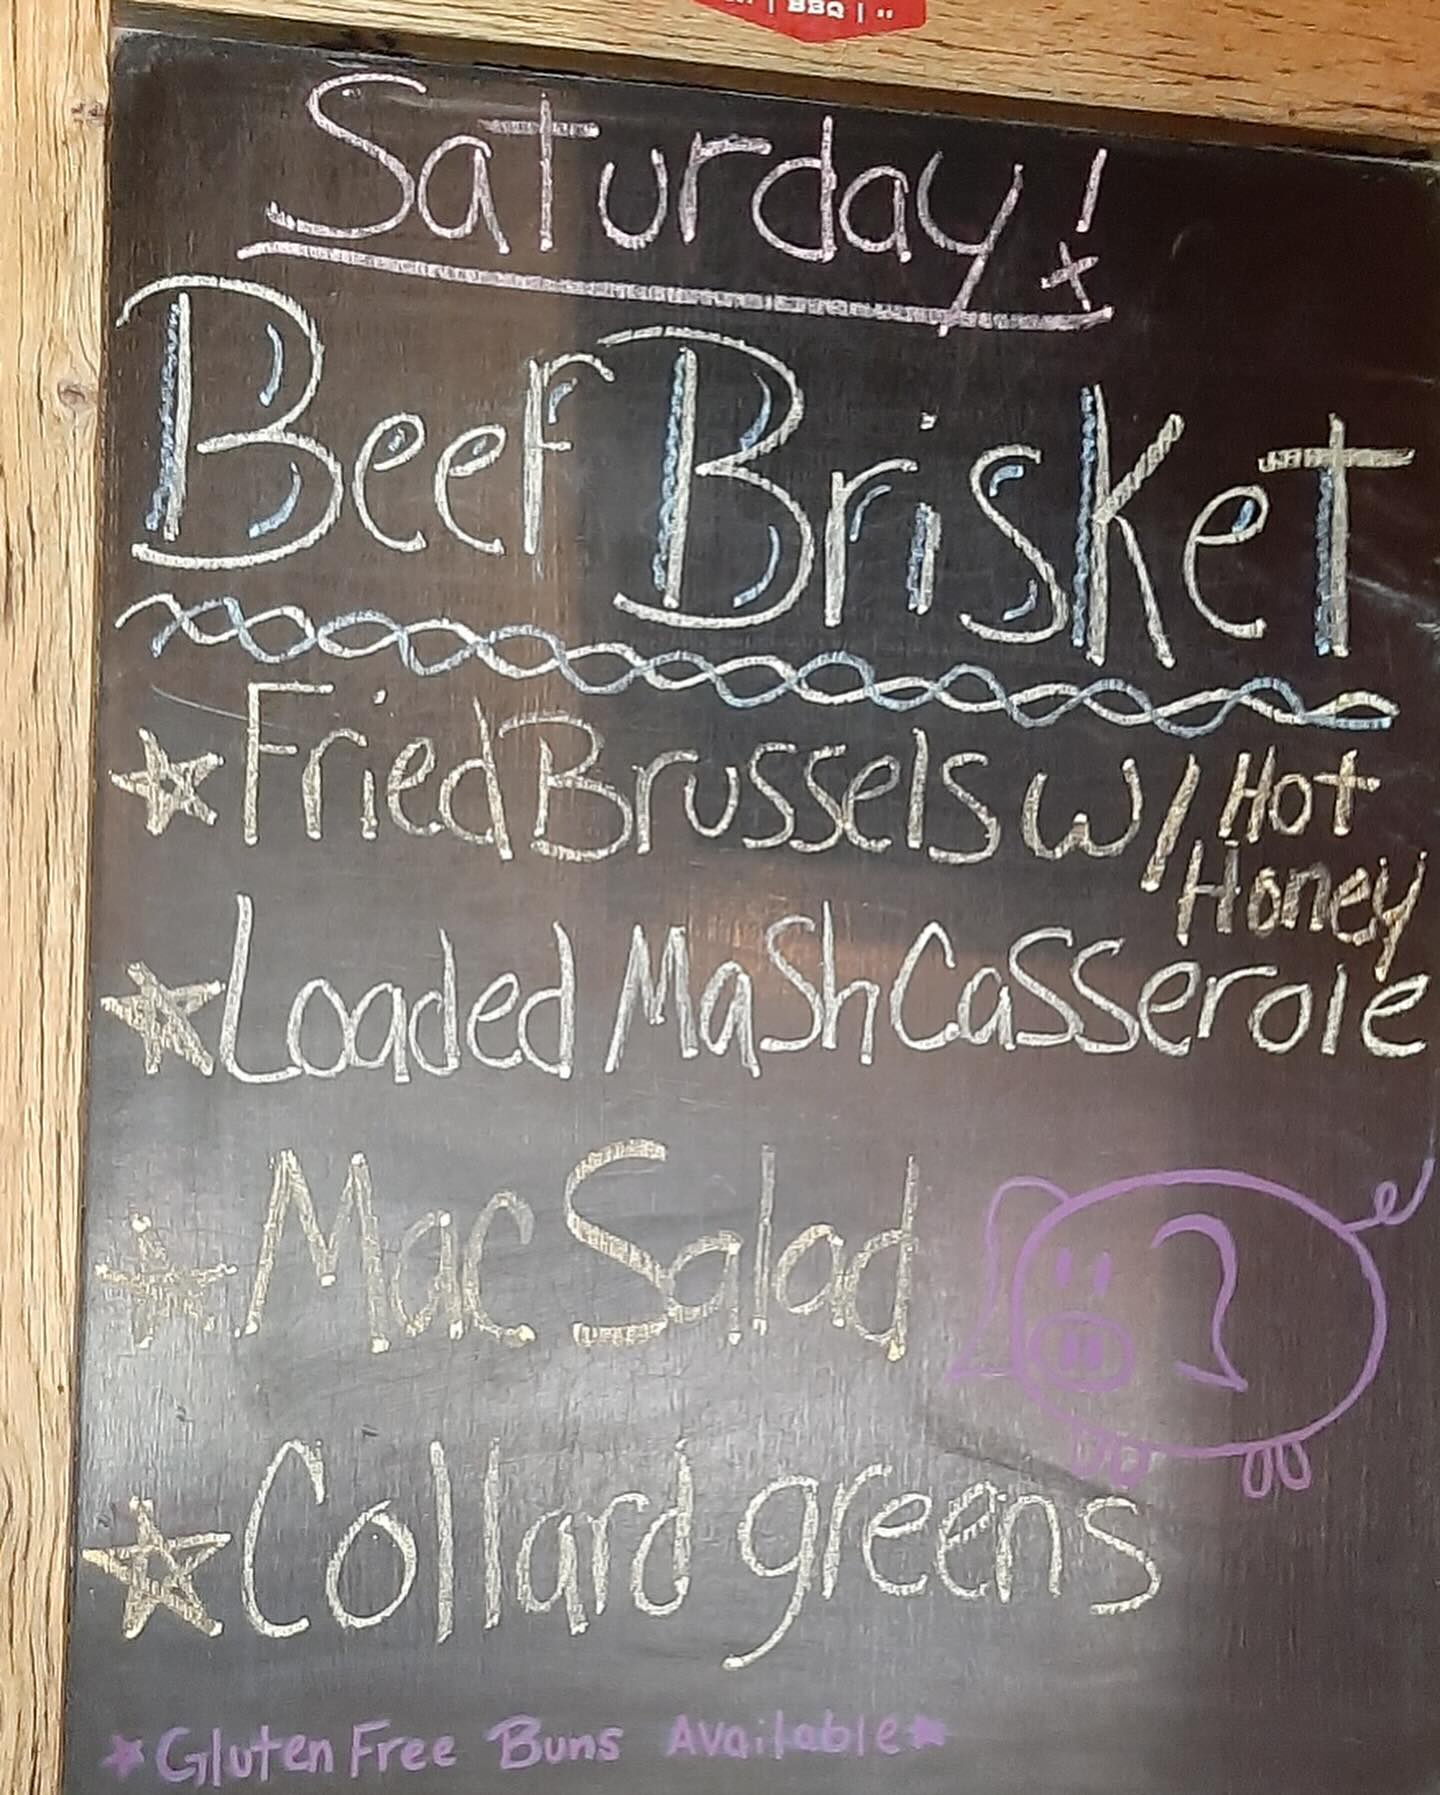 | BBQ |
Saturday!
Beef Brisket
Fried Brussels w/ Hot
Honey
Loaded Mash Casserole
Mac Salad
Collard greens
Gluten Free Buns Available